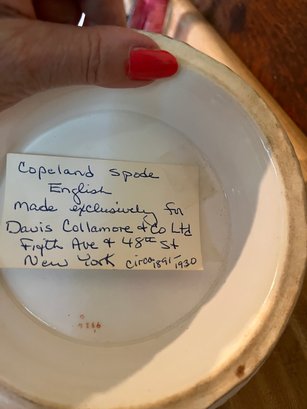 Copeland Spode
English
made exclusively for
Davis Collamore & Co Ltd
Fifth Ave & 48th St
New York circa 1891-1930